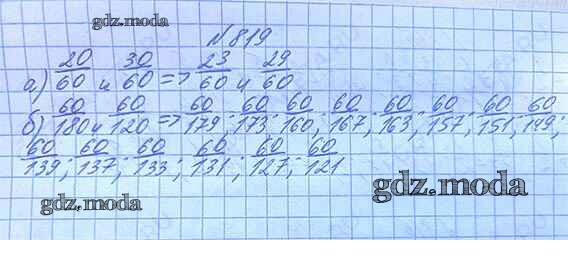 gdz.moda
№ 819
gdz.moda
а) 20/60 и 30/60 => 23/60 и 29/60
б) 60/180 и 60/120 => 60/179; 60/173; 60/160; 60/167; 60/163; 60/157; 60/151; 60/149;
60/139; 60/137; 60/133; 60/131; 60/127; 60/121
gdz.moda
gdz.moda